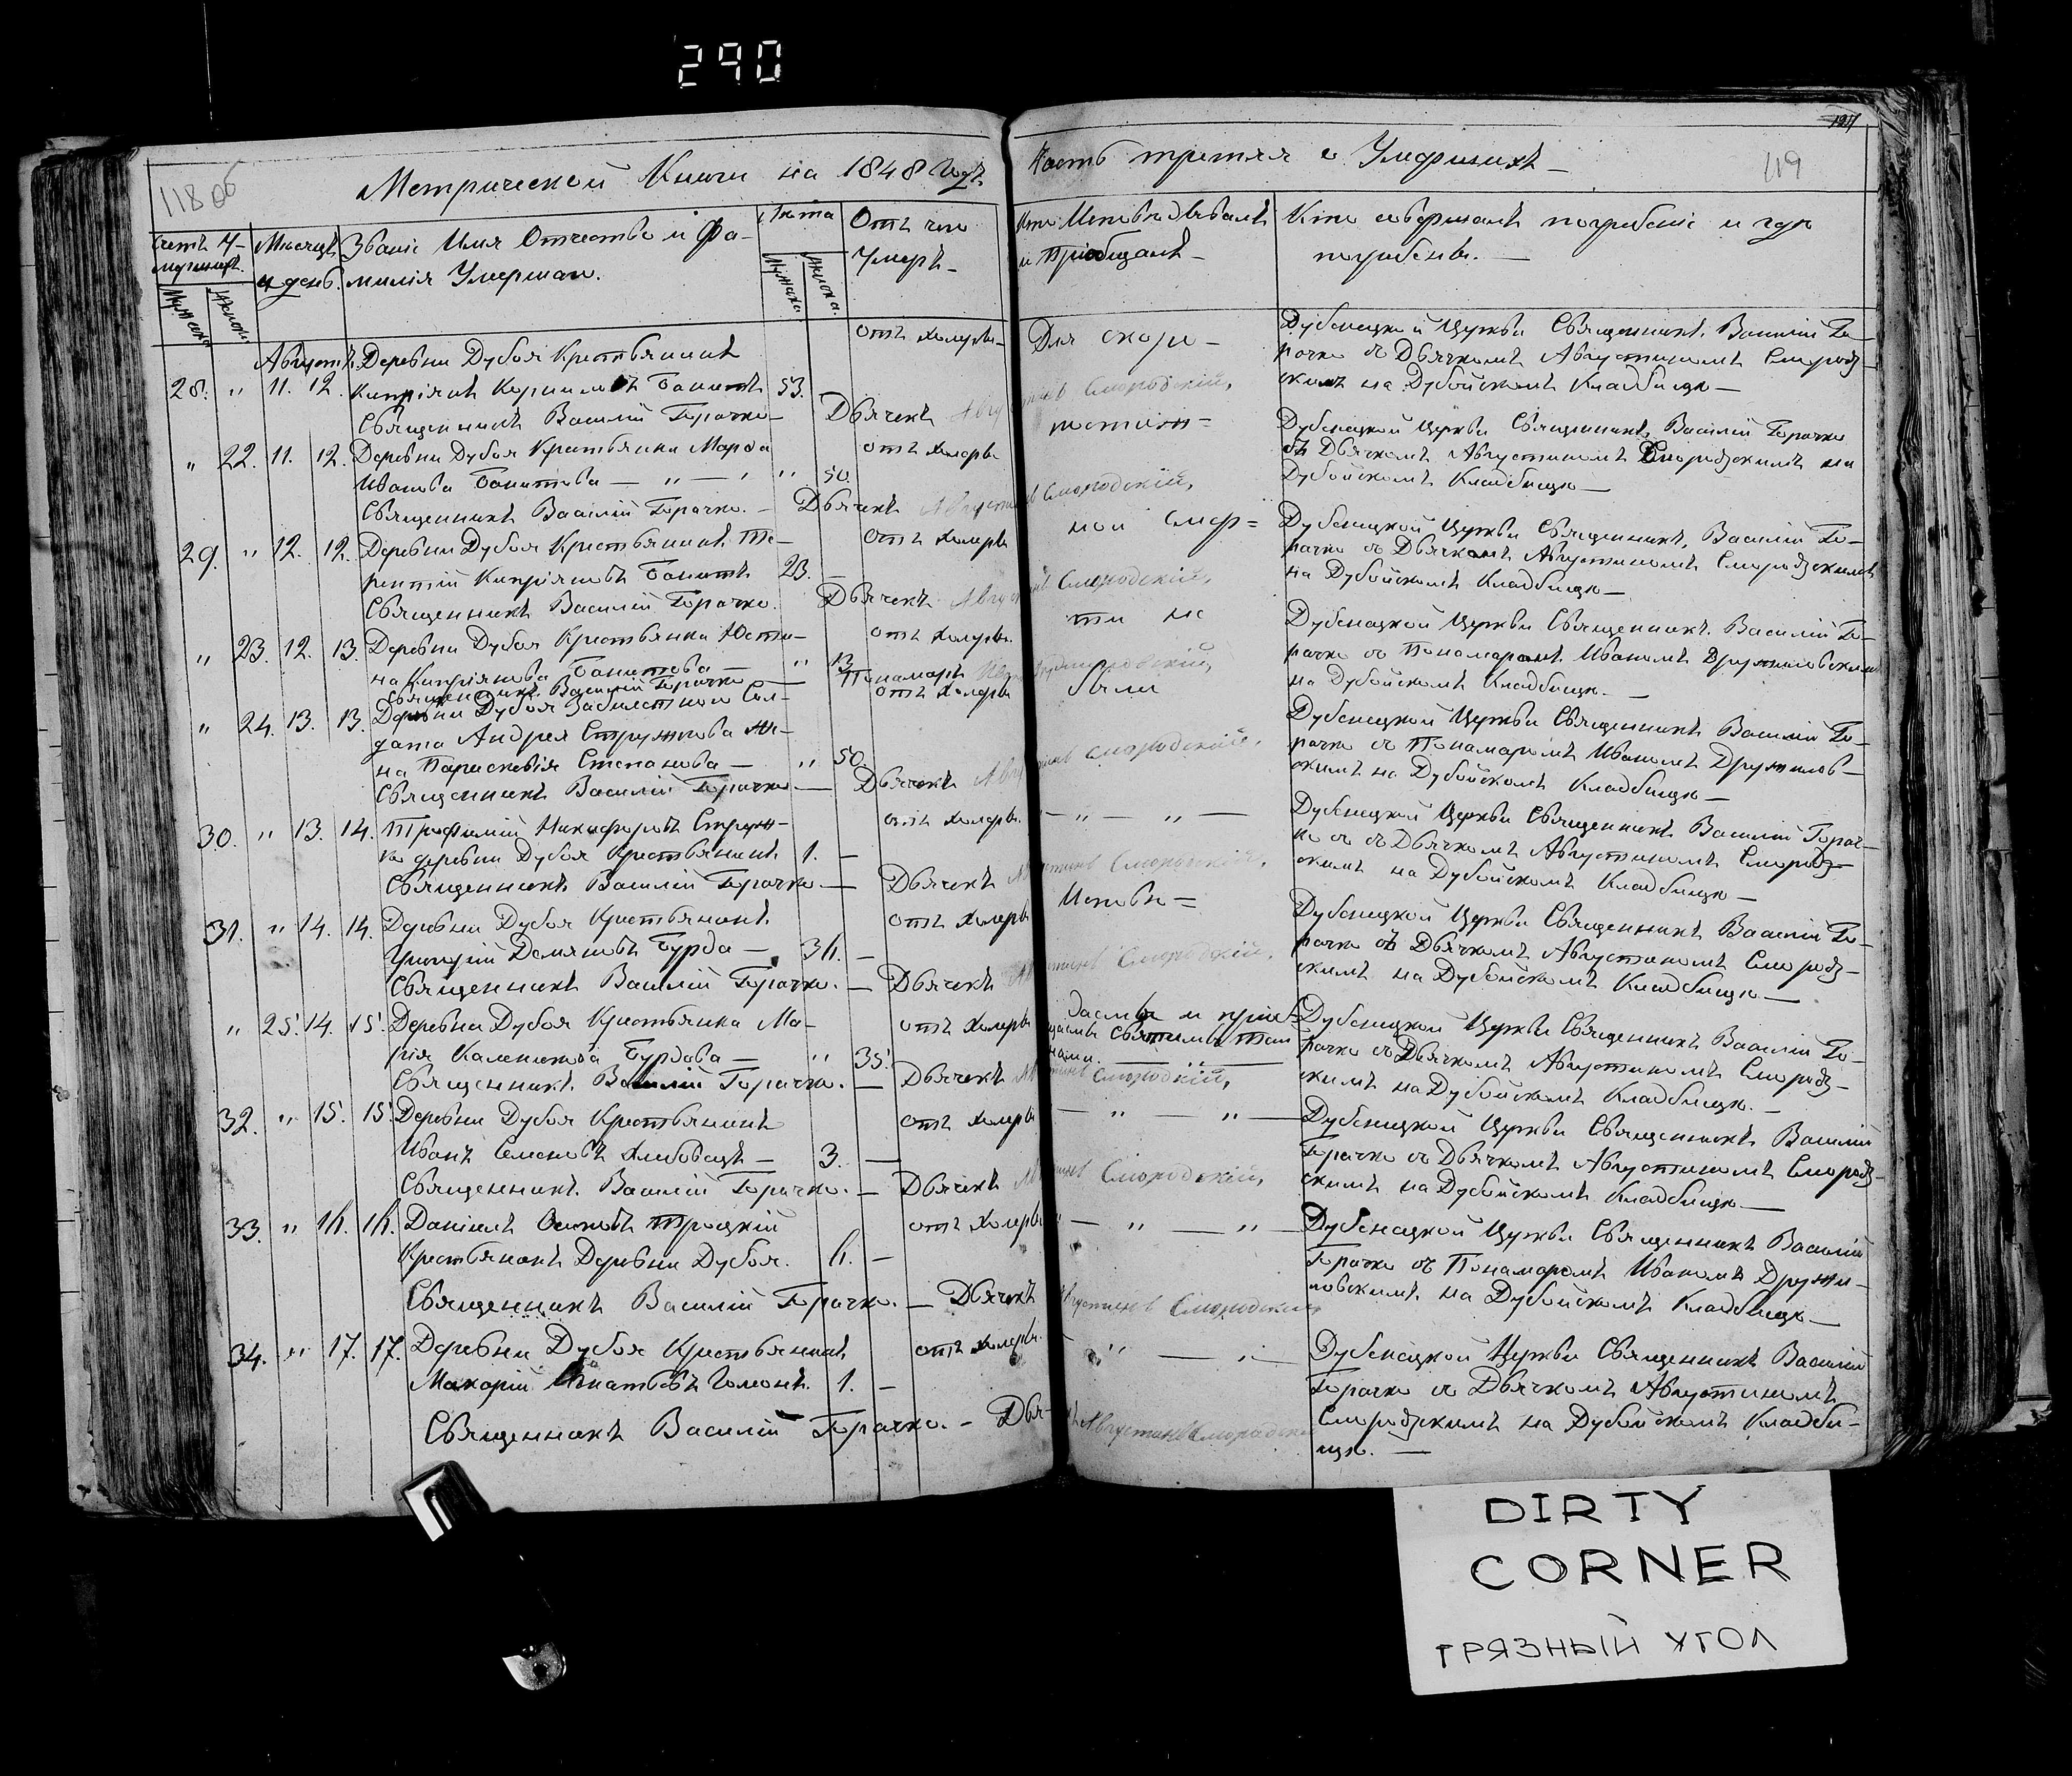 290
118 об
Метрической Книги на 1848 Годъ
Часть третяя о Умершихъ
119
Счетъ У-
мершихъ.
Мужеска
Женска
Месяцъ
и день.
Званіе Имя Отчество и Фа-
милія Умершаго.
Лѣта
Мужеска.
Женска.
Отъ чего
Умеръ
Кто Исповѣдывалъ
и Пріобщалъ
Кто совершалъ погребеніе и гдѣ
погребены.
Августъ Деревни Дубоя Крестьянинъ
28. " 11. 12. Кипріянъ Банитъ 53. отъ холеры
Священникъ Василій Горачко Дьячекъ Августинъ Смородскій,
Для скоро-
Дубенецкой Церкви Священникъ Василій Го-
рачко съ Дьячкомъ Августиномъ Смородз-
скимъ на Дубойскомъ Кладбищѣ
" 22. 11. 12. Деревни Дубоя Крестьянка Марфа отъ холеры
Иванова Банитова — " — " 50.
Священникъ Василій Горачко. — Дьячекъ Августинъ Смородскій,
постиж=
Дубенецкой Церкви Священникъ Василій Горачко
съ Дьячкомъ Августиномъ Смородзскимъ на
Дубойскомъ Кладбищѣ
29. " 12. 12. Деревни Дубоя Крестьянинъ Те- отъ холеры
рентій Кипріяновъ Банитъ 23. —
Священникъ Василій Горачко. Дьячекъ Августинъ Смородскій,
ной смер=
Дубенецкой Церкви Священникъ Василій Го-
рачко съ Дьячкомъ Августиномъ Смородзскимъ
на Дубойскомъ Кладбищѣ
" 23. 12. 13. Деревни Дубоя Крестьянка Юсти- отъ холеры
на Кипріянова Банитова — " 13
Священникъ Василій Горачко — Понамарь
ти не
Дубенецкой Церкви Священникъ Василій Го-
рачко съ Понамаромъ Иваномъ Дружиловскимъ
на Дубойскомъ Кладбищѣ.
" 24. 13. 13. Деревни Дубоя Сол- отъ холеры
дата Андрея Стружкова же-
на Парасковія Степанова — " 50.
Священникъ Василій Горачко — Дьячекъ Августинъ Смородскій,
были
Дубенецкой Церкви Священникъ Василій Го-
рачко съ Понамаромъ Иваномъ Дружилов-
скимъ на Дубойскомъ Кладбищѣ
30. " 13. 14. Трофимій Никифоровъ Струж- отъ холеры — " — " —
ко деревни Дубоя Крестьянинъ 1. —
Священникъ Василій Горачко — Дьячекъ Августинъ Смородскій,
Дубенецкой Церкви Священникъ Василій Горач-
ко съ съ Дьячкомъ Августиномъ Смородз-
скимъ на Дубойскомъ Кладбищѣ
31. " 14. 14. Деревни Дубоя Крестьянинъ отъ холеры
Григорій Демяновъ Бурда — 36. —
Священникъ Василій Горачко. — Дьячекъ Августинъ Смородскій,
Исповѣ=
Дубенецкой Церкви Священникъ Василій Го-
рачко съ Дьячкомъ Августиномъ Смородз-
скимъ на Дубойскомъ Кладбищѣ
" 25. 14. 15. Деревни Дубоя Крестьянка Ма- отъ холеры
рія Бурдова — " 35.
Священникъ Василій Горачко. — Дьячекъ Августинъ Смородскій,
даемы и пріоб=
щаемы Святыми Тай
нами.
Дубенецкой Церкви Священникъ Василій Го-
рачко съ Дьячкомъ Августиномъ Смородз-
скимъ на Дубойскомъ Кладбищѣ.
32. " 15. 15. Деревни Дубоя Крестьянинъ отъ холеры — " — " —
Иванъ Семеновъ 3. —
Священникъ Василій Горачко. — Дьячекъ Августинъ Смородскій,
Дубенецкой Церкви Священникъ Василій
Горачко съ Дьячкомъ Августиномъ Смородз-
скимъ на Дубойскомъ Кладбищѣ
33. " 16. 16. Даніилъ Троцкій отъ холеры — " — " —
Крестьянинъ Деревни Дубоя. 6. —
Священникъ Василій Горачко. — Дьячекъ Августинъ Смородскій
Дубенецкой Церкви Священникъ Василій
Горачко съ Понамаромъ Иваномъ Дружи-
ловскимъ на Дубойскомъ Кладбищѣ
34. " 17. 17. Деревни Дубоя Крестьянинъ отъ холеры. " — " —
Макарій Игнатьевъ Гомонъ. 1. —
Священникъ Василій Горачко. — Дьячекъ Августинъ Смородскій
Дубенецкой Церкви Священникъ Василій
Горачко съ Дьячкомъ Августиномъ
Смородзскимъ на Дубойскомъ Кладби-
щѣ.
DIRTY
CORNER
ГРЯЗНЫЙ УГОЛ